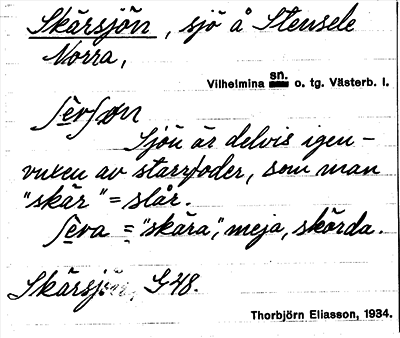 Skärsjön, sjö å Stensele
Norra,
Vilhelmina sn. o. tg. Västerb. l.
Sjön är delvis igen-
vuxen av starrfoder, som man
"skär" = slår.
= "skära", meja, skörda.
Skärsjön, G48.
Thorbjörn Eliasson, 1934.